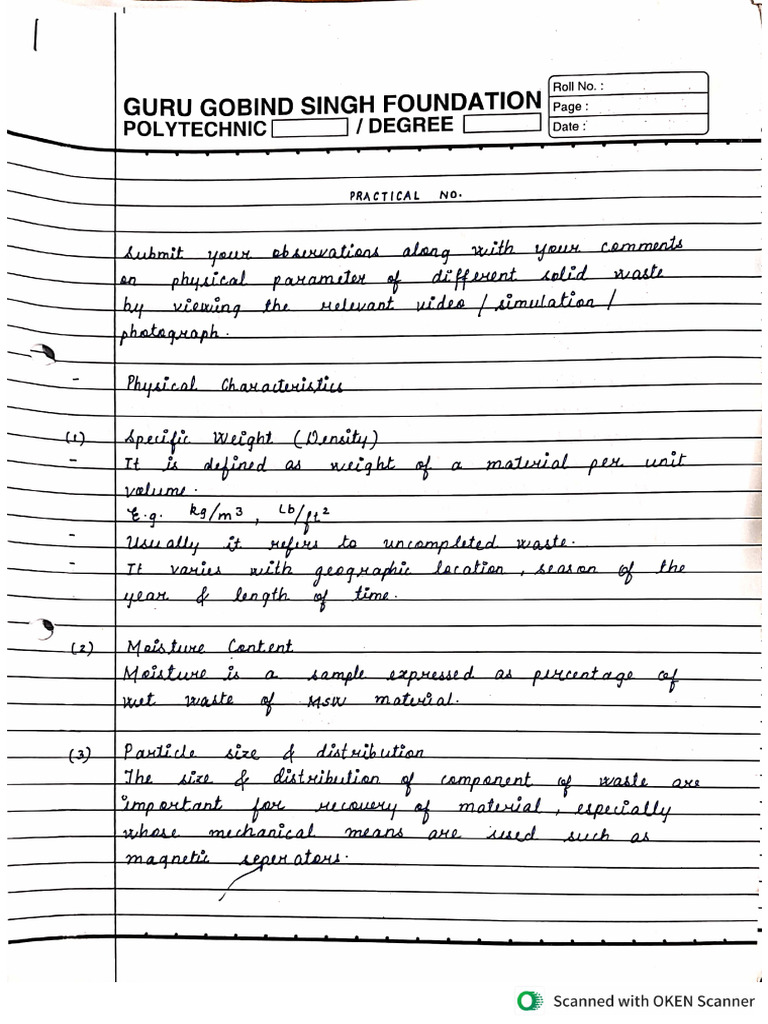 1
GURU GOBIND SINGH FOUNDATION
POLYTECHNIC / DEGREE
Roll No. :
Page :
Date :
PRACTICAL NO.
Submit your observations along with your comments
on physical parameter of different solid waste
by viewing the relevant video / simulation /
photograph.
- Physical Characteristics
(1) Specific Weight (Density)
- It is defined as weight of a material per unit
volume.
E.g. kg/m³, Lb/ft²
- Usually it refers to uncompleted waste.
- It varies with geographic location, season of the
year & length of time.
(2) Moisture Content
Moisture is a sample expressed as percentage of
wet waste of MSW material.
(3) Particle size & distribution
The size & distribution of component of waste are
important for recovery of material, especially
whose mechanical means are used such as
magnetic seperators.
Scanned with OKEN Scanner